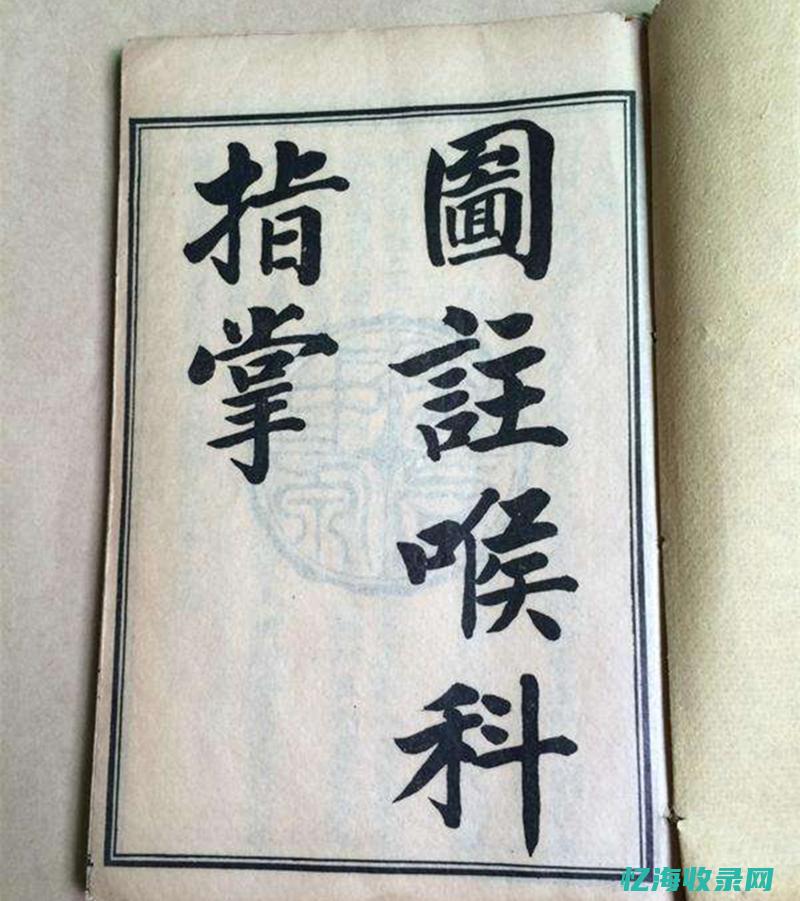 圖註喉科
指掌
忆海收录网